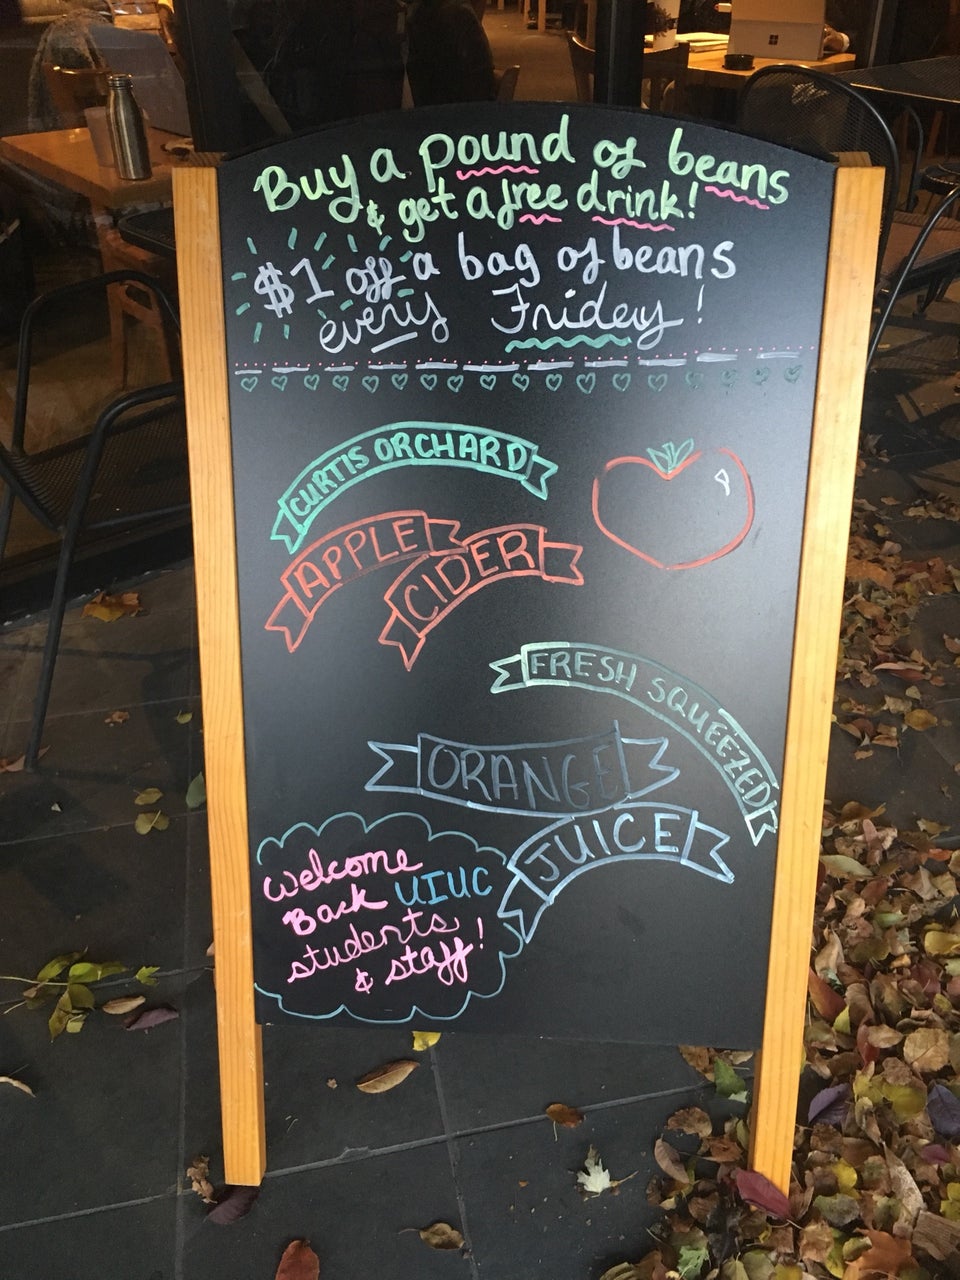 Buy a pound of beans
& get a free drink!
$1 off a bag of beans
every Friday!
CURTIS ORCHARD
APPLE
CIDER
FRESH SQUEEZED
ORANGE
JUICE
Welcome
Back UIUC
students
& staff!